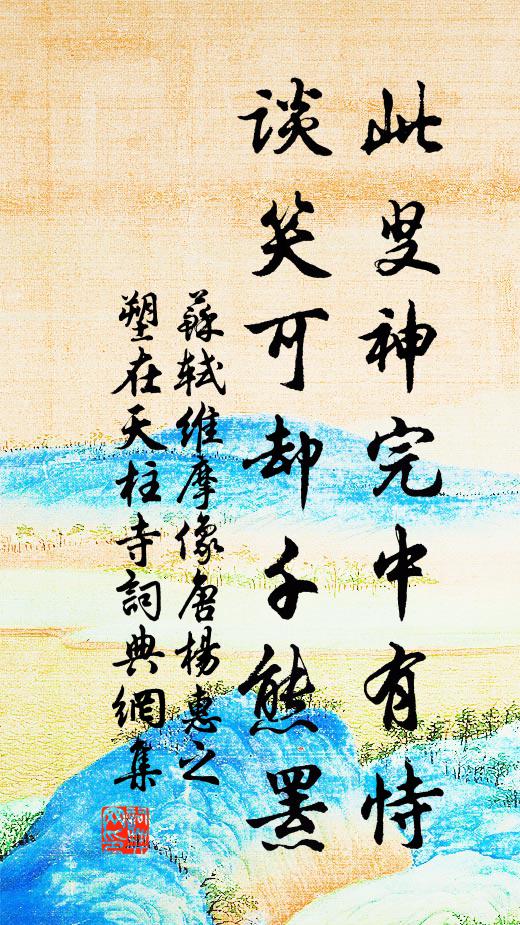 此叟神完中有恃
谈笑可却千熊罴
蘇軾维摩像唐楊惠之
塑在天柱寺詞典網集